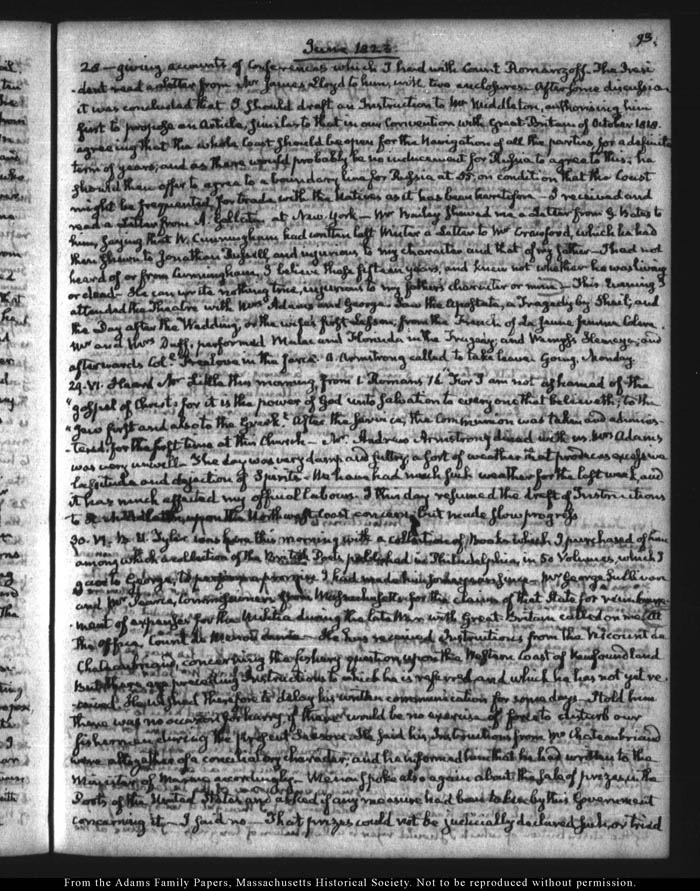 93.
June 1823.
28 — giving accounts of Conferences which I had with Count Romanzoff. The Presi
-dent read a letter from Mr James Lloyd to him, with two enclosures. After some discussion
it was concluded that I should draft an Instruction to Mr Middleton, authorising him
first to propose an Article, similar to that in our Convention with Great Britain of October 1818.
agreeing that the whole Coast should be open for the Navigation of all the parties for a definite
term of years; and as there would probably be no inducement for Russia to agree to this; he
should then offer to agree to a boundary line for Russia at 55, on condition that the Coast
might be frequented for trade with the Natives as it has been heretofore — I received and
read a letter from A. Gallatin at New-York — Mr Bailey shewed me a Letter from to
him, saying that W. Cunningham had written last Winter a Letter to Mr Crawford, which he had
then shewn to Jonathan Russell and injurious to my character and that of my father — I had not
heard of or from Cunningham, I believe these fifteen years, and knew not whether he was living
or dead — He can write nothing true, injurious to my father's character or mine — This Evening I
attended the Theatre with Mrs Adams and George. Saw the Apostate, a Tragedy by Sheil, and
the Day after the Wedding, or the wife's first Lesson, from the French of La Jeune femme Colere.
Mr and Mrs Duff, performed Malec and Florinda in the Tragedy, and Hemeya; and
afterwards Col. Freelove in the farce. A. Armstrong called to take leave. Going, Monday.
29. VI. Heard Mr Little this morning, from 1. Romans 16 "For I am not ashamed of the
"gospel of Christ: for it is the power of God unto Salvation to every one that believeth; to the
"Jew first and also to the Greek." After the service, the Communion was taken and adminis-
-tered, for the first time at this Church — Mr. Andrew Armstrong dined with us. Mrs Adams
was very unwell. The day was very damp and sultry, a sort of weather that produces excessive
lassitude and dejection of Spirits — We have had much such weather for the last week, and
it has much affected my official labours. I this day resumed the draft of Instructions
to upon the Northwest coast concern; but made slow progress
30. VI. was here this morning with a collection of Books which I purchased of him
among which a collection of the British Poets published in Philadelphia, in 50 Volumes, which I
gave to George, to perform a promise I had made him — Mr George Sullivan
and Mr Commissioners from Massachusetts for the claim of that State for reimburse-
-ment of expenses for the Militia during the late War with Great Britain called on me at
the Office. Count de Menou came — He has received Instructions from the Viscount de
Chateaubriand, concerning the fishery question, upon the Western Coast of Newfoundland
But there are preceding Instructions to which he is referred, and which he has not yet re-
-ceived. He wished therefore to delay his written communication for some days — I told him
there was no occasion for hurry, if there would be no exercise of force to disturb our
fishermen during the present Season. He said his Instructions from Mr Chateaubriand
were altogether of a conciliatory character, and he informed him that he had written to the
Minister of Marine accordingly — Menou spoke also again about the sale of prizes in the
Ports of the United States and asked if any measure had been taken by this Government
concerning it — I said no — That prizes could not be judicially declared such, or tried
From the Adams Family Papers, Massachusetts Historical Society. Not to be reproduced without permission.